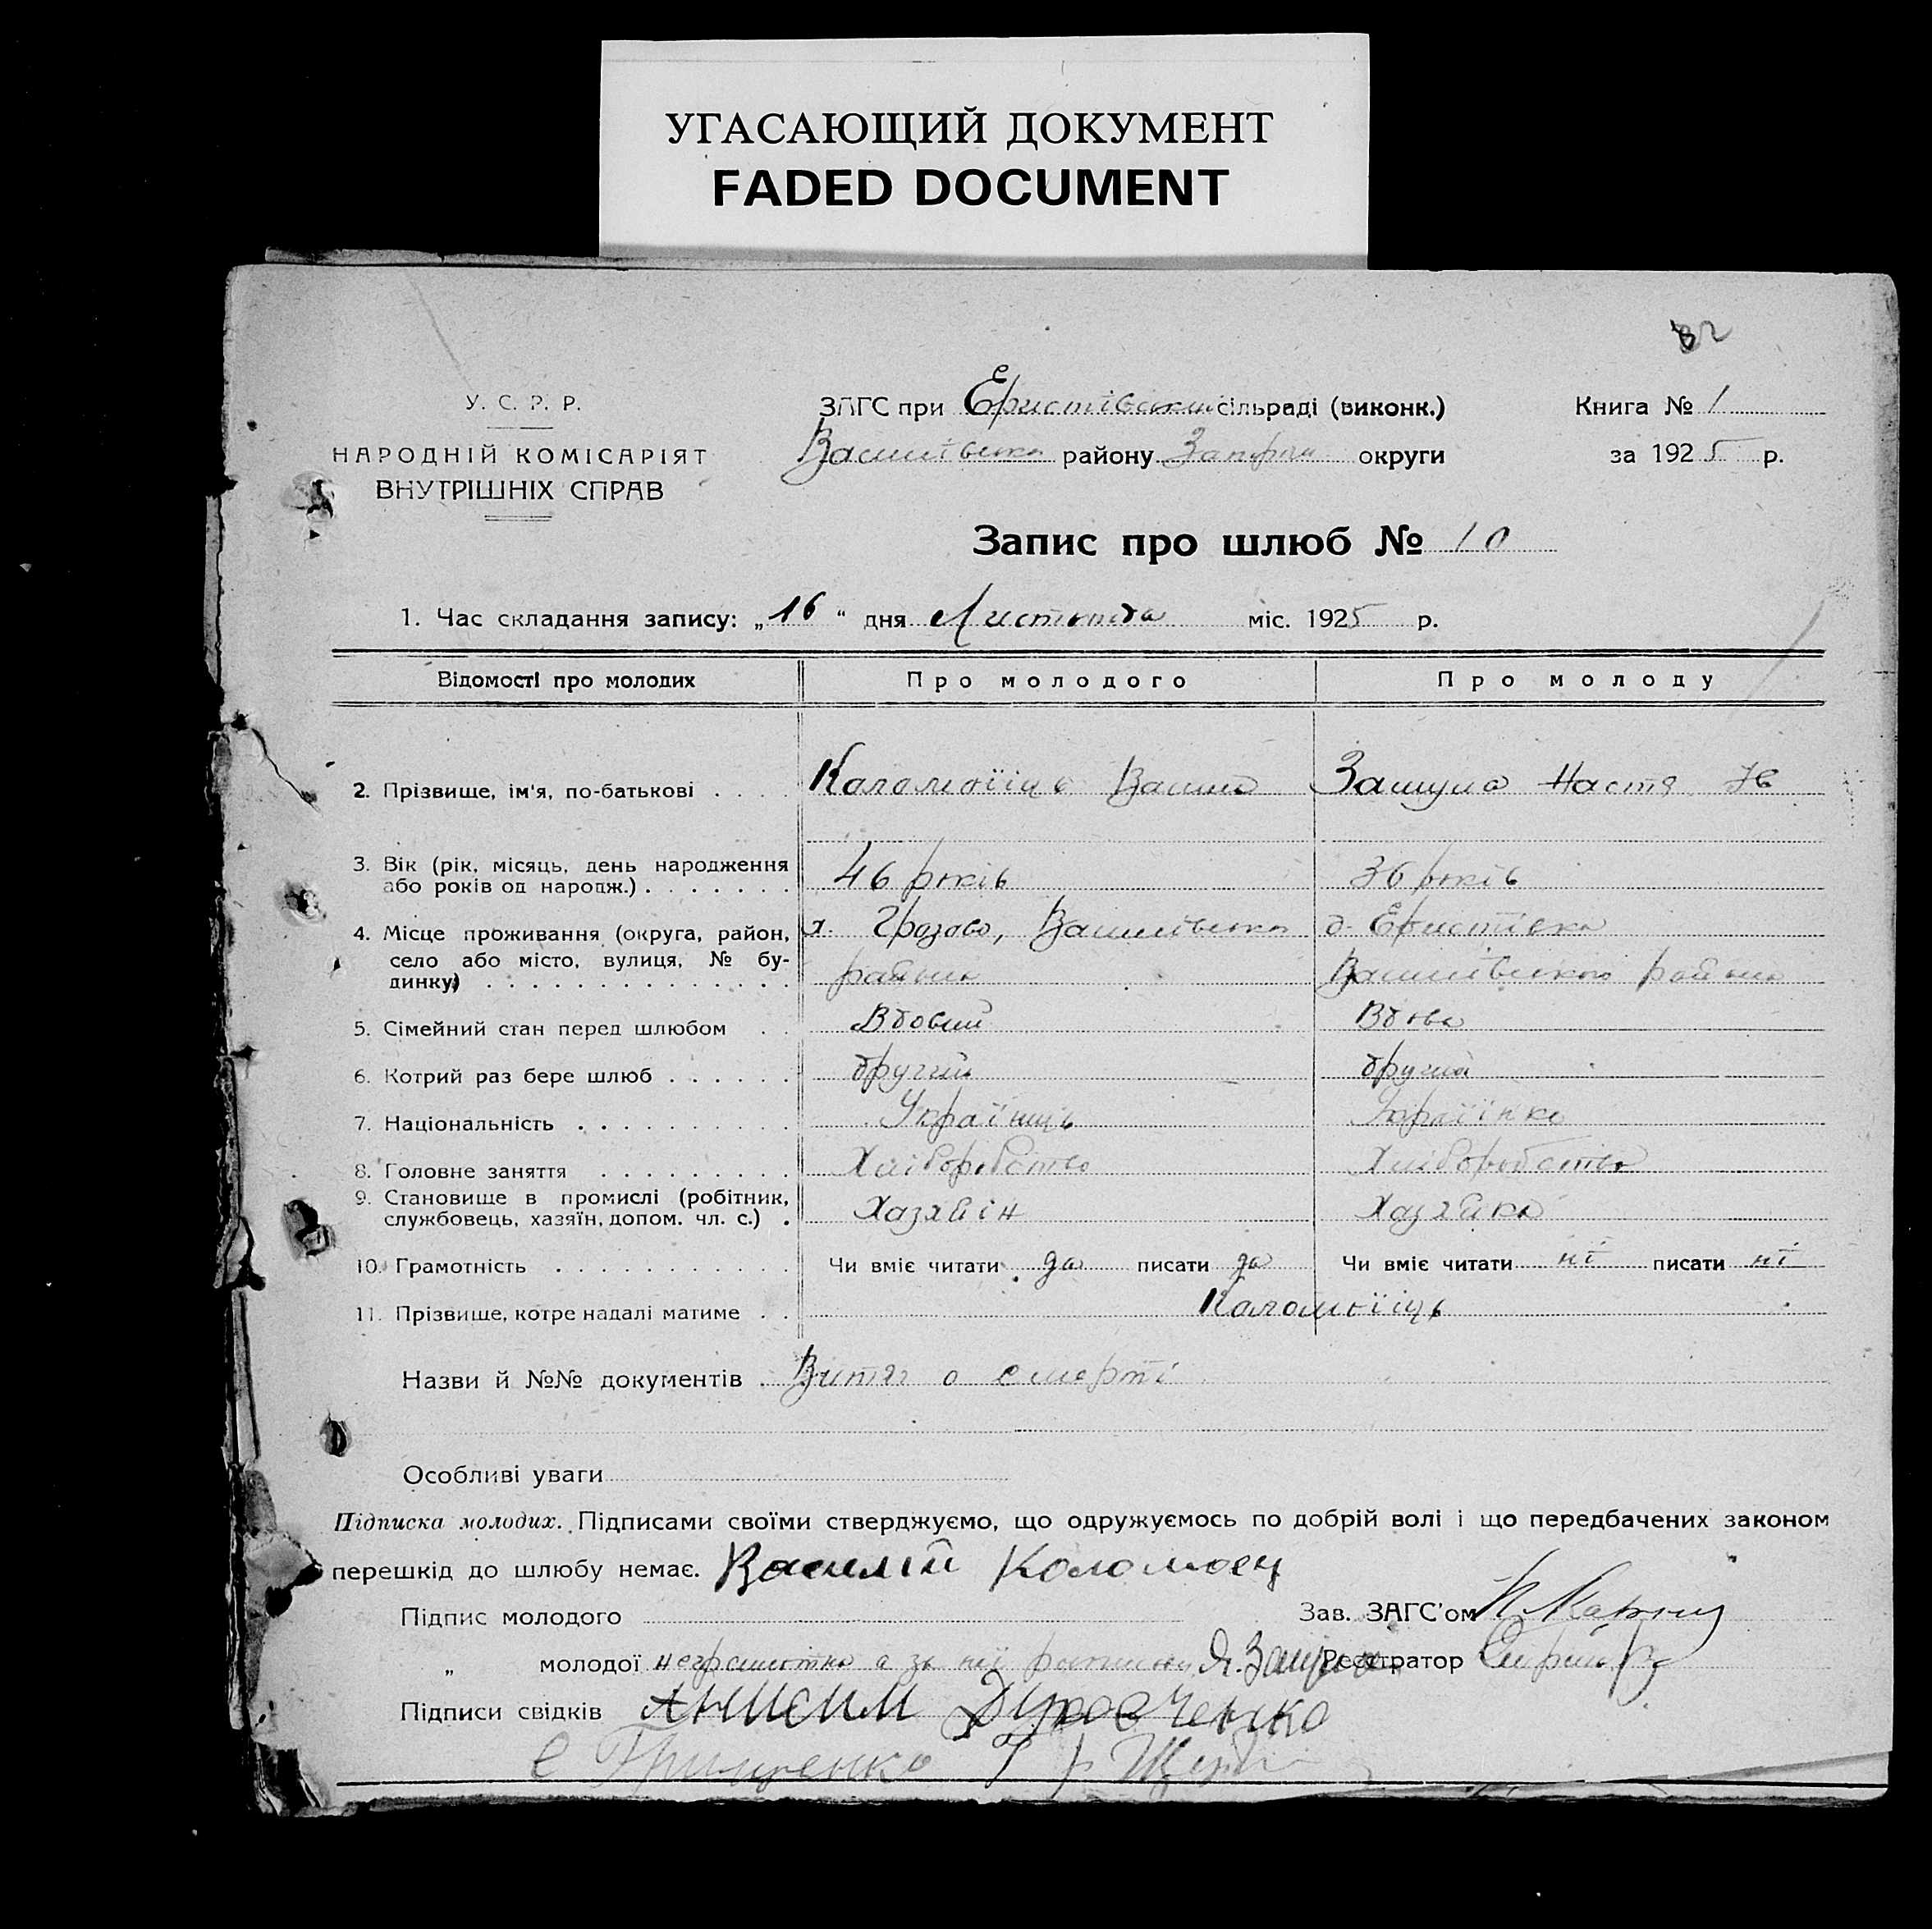 УГАСАЮЩИЙ ДОКУМЕНТ
FADED DOCUMENT
82
У. С. Р. Р.
НАРОДНІЙ КОМІСАРІЯТ
ВНУТРІШНІХ СПРАВ
ЗАГС при Єристівський сільраді (виконк.)
Василівсько району Запоріж округи
Книга № 1
за 1925 р.
Запис про шлюб № 10
1. Час складання запису: „16“ дня Листопада міс. 1925 р.
Відомості про молодих Про молодого Про молоду
2. Прізвище, ім'я, по-батькові . . . . Каламоїіць Васило Зашула Настя
3. Вік (рік, місяць, день народження
або років од народж.) . . . . . . . 46 років 36 років
4. Місце проживання (округа, район, х. Грозово, Василівсько д. Єристівка
село або місто, вулиця, № бу- району Василівського району
динку) . . . . . . . . . . . . . .
5. Сімейний стан перед шлюбом . . Вдовий Вдова
6. Котрий раз бере шлюб . . . . . . другий другий
7. Національність . . . . . . . . . . Українць Українка
8. Головне заняття . . . . . . . . . Хліборобство Хліборобство
9. Становище в промислі (робітник,
службовець, хазяїн, допом. чл. с.) . Хазяйін Хазяйка
10. Грамотність . . . . . . . . . . . Чи вміє читати да писати да Чи вміє читати ні писати ні
11. Прізвище, котре надалі матиме . . Каламоїіць
Назви й №№ документів . Витяг о смерті
Особливі уваги
Підписка молодих. Підписами своїми стверджуємо, що одружуємось по добрій волі і що передбачених законом
перешкід до шлюбу немає. Василій Коломоец
Підпис молодого Зав. ЗАГС'ом
„ молодої неграмотна а за неї Я. Зашула Реєстратор
Підписи свідків Анисим
Е Грищенко